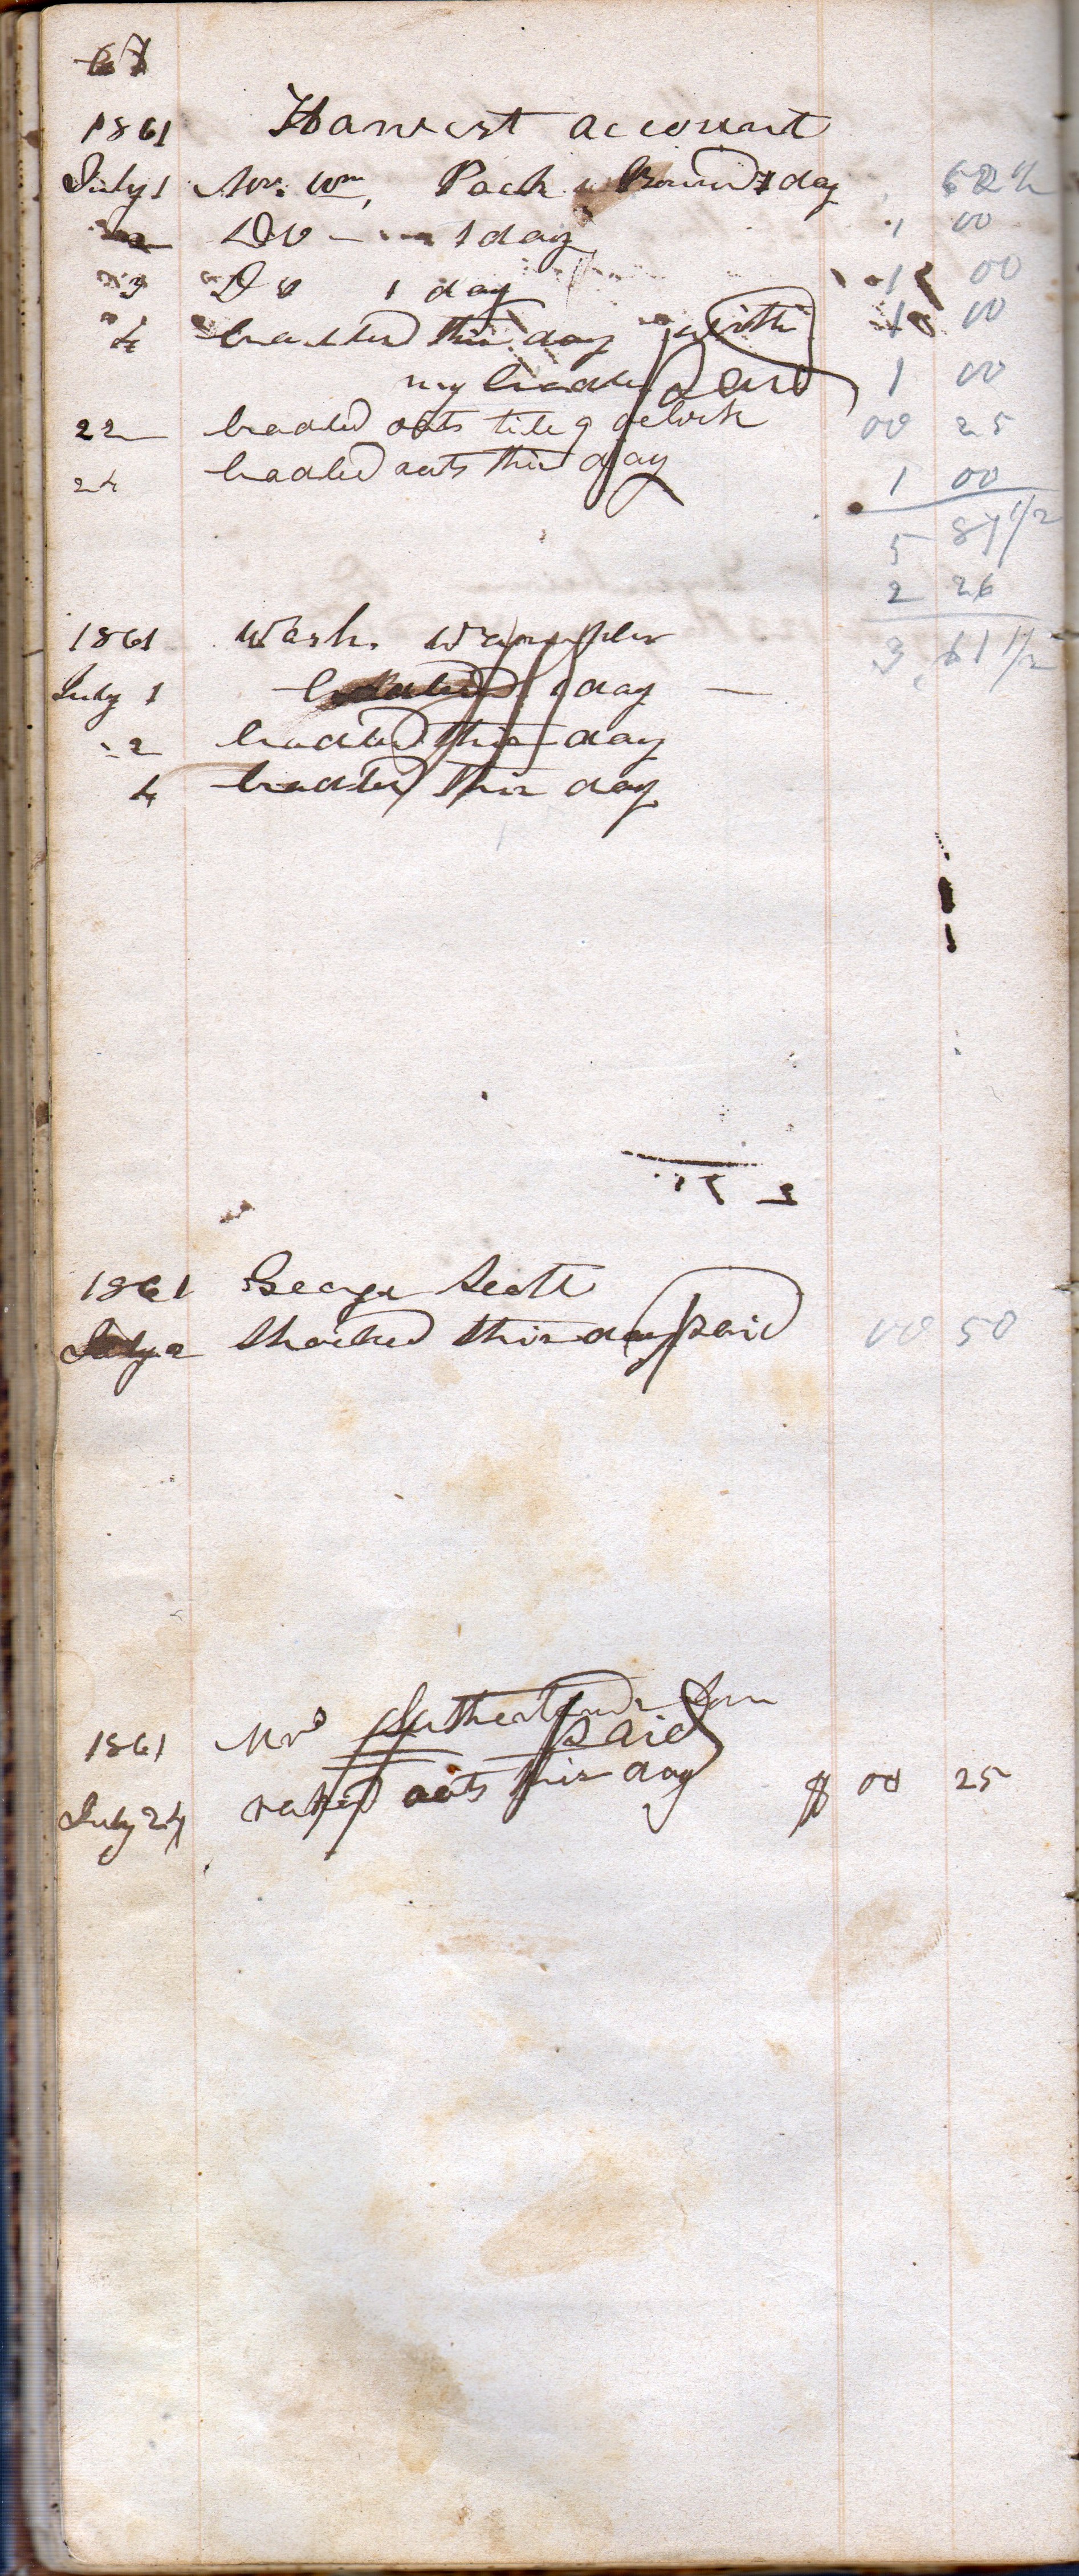 67
1861 Harvest account
July 1 Mr. Wm, Pack Bound 1 day 62 1/2
2 Do 1 day 1 00
3 Do 1 day 1 00
4 Cradled this day with 1 00
my Cradle Paid 1 00
22 Cradled oats tile 9 oclock 00 25
24 Cradled oats this day 1 00
5 87 1/2
2 26
3 61 1/2
1861 Wash. Wampler
July 1 Cradled 1 day
2 Cradled this day
4 Cradled this day
1861 George Scott
July 2 Shocked this day paid 00 50
1861 Mrs Sutherlands Son
paid
July 24 raked oats this day $ 00 25